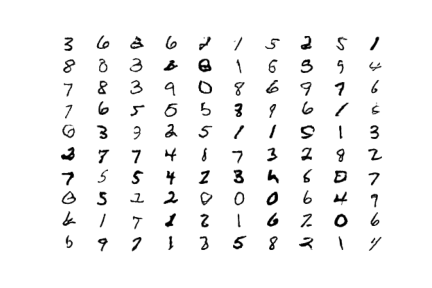 3 6 8 6 2 1 5 2 5 1
8 8 3 2 0 1 6 3 9 4
7 8 3 9 0 8 6 9 7 6
7 6 5 5 5 3 9 6 1 6
0 3 9 2 5 1 1 5 1 3
2 7 7 4 8 7 3 2 8 2
7 5 5 4 2 3 4 6 0 7
0 5 2 2 0 0 0 6 4 9
6 1 7 1 2 1 6 2 0 6
5 9 7 1 3 5 8 2 1 4